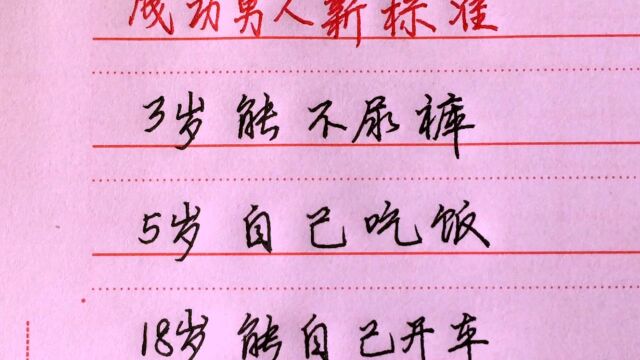 成功男人新标准
3岁能不尿裤
5岁自己吃饭
18岁能自己开车